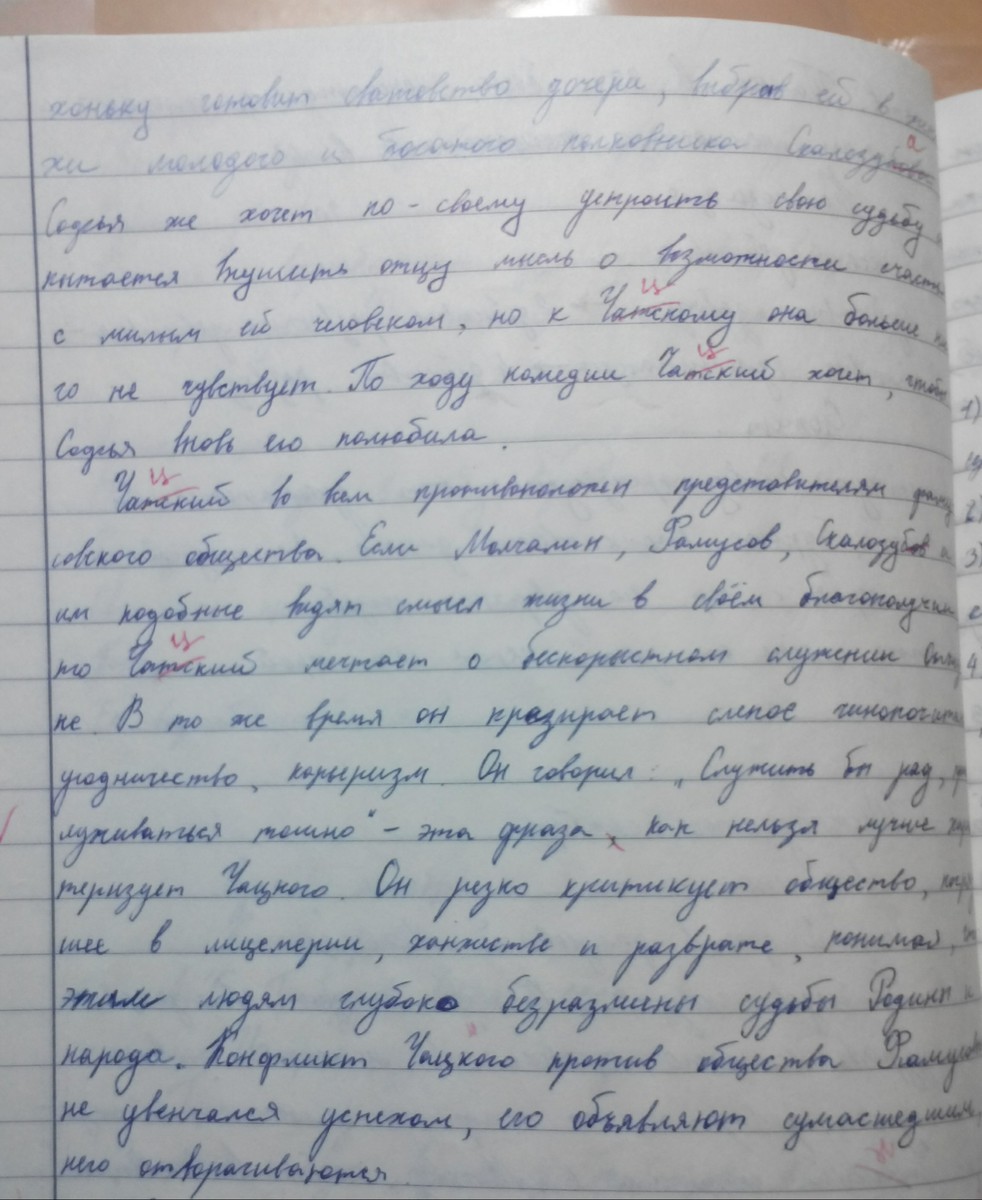 хоньку готовит сватовство дочери, выбрав ей в же
хи молодого и богатого полковника Скалозуба
Софья же хочет по-своему устроить свою судьбу,
пытается внушить отцу мысль о возможности счасть
с милым ей человеком, но к Чатскому она больше ни
го не чувствует. По ходу комедии Чатский хочет, чтобы 1)
Софья вновь его полюбила.
Чатский во всем противоположен представителям фаму 2)
совского общества. Если Молчалин, Фамусов, Скалозубов и 3)
им подобные видят смысл жизни в своём благополучии
то Чатский мечтает о бескорыстном служении Отчиз 4
не. В то же время он презирает слепое чинопочита
угодничество, карьеризм. Он говорил: „Служить бы рад, пр
служиваться тошно“ – эта фраза, как нельзя лучше хар
теризует Чацкого. Он резко критикует общество, погря
шее в лицемерии, ханжестве и разврате, понимая, ч
этим людям глубоко безразличны судьбы Родины и
народа. Конфликт Чацкого против общества Фамусов
не увенчался успехом, его объявляют сумасшедшим,
него отворачиваются.